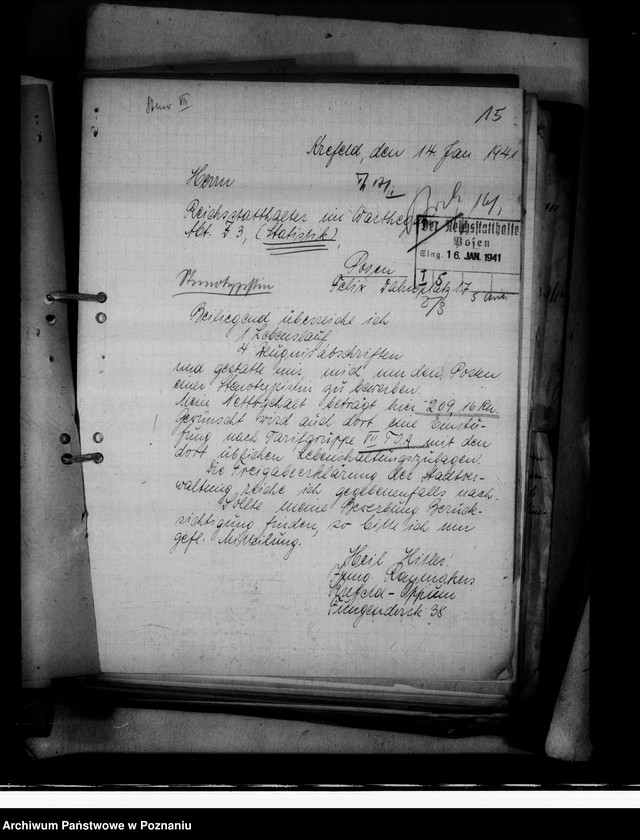 VII
15
Krefeld, den 14. Jan 1941
Herrn
Reichsstatthalter im Warthegau
Abt. I 3, (Statistik),
Der Reichsstatthalter
Posen
Eing. 16. JAN. 1941
I 5
2/3 5 Anl.
Posen
Felix Dahnplatz 17
Stenotypistin
Beiliegend überreiche ich
1 Lebenslauf
4 Zeugnisabschriften
und gestatte mir, mich um den Posten
einer Stenotypistin zu bewerben.
Mein Nettogehalt beträgt hier 209,16 Rm.
Gewünscht wird auch dort eine Einstu-
fung nach Tarifgruppe VII T.O.A. mit den
dort üblichen Lebenshaltungszulagen.
Die Freigabeerklärung der Stadtver-
waltung reiche ich gegebenenfalls nach.
Sollte meine Bewerbung Berück-
sichtigung finden, so bitte ich um
gefl. Mitteilung.
Heil Hitler!
Krefeld-Oppum
38
Archiwum Państwowe w Poznaniu